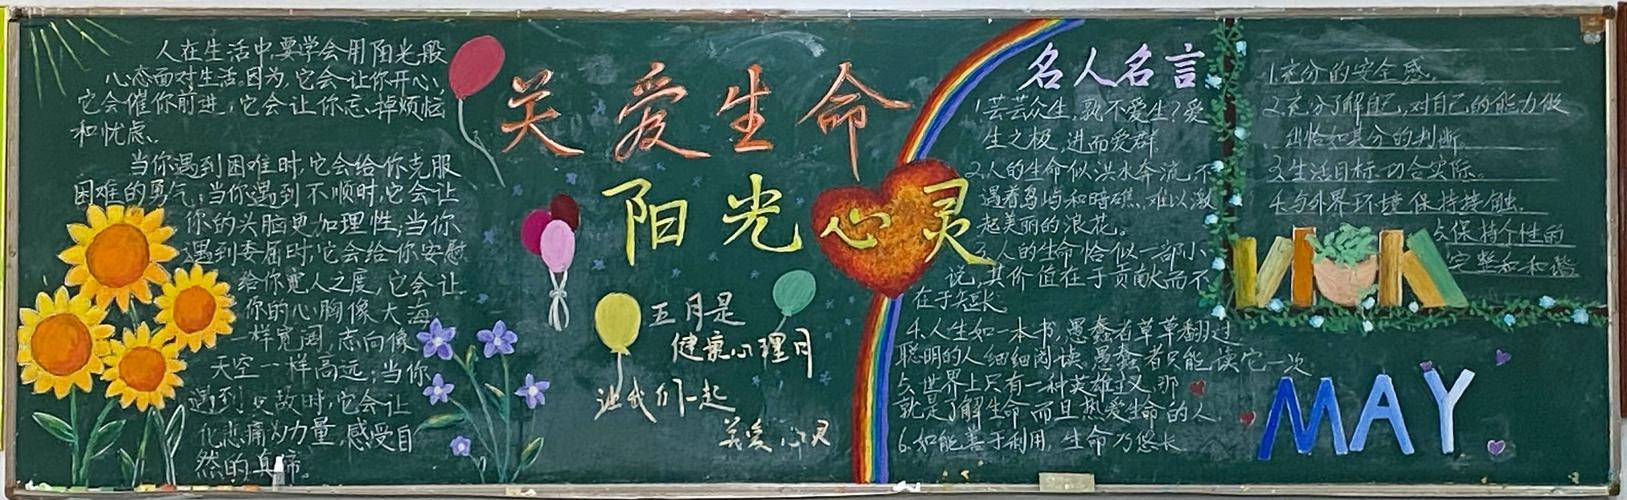 人在生活中,要学会用阳光般
心态面对生活。因为,它会让你开心,
它会催你前进,它会让你忘掉烦恼
和忧虑。
当你遇到困难时,它会给你克服
困难的勇气;当你遇到不顺时,它会让
你的头脑更加理性;当你
遇到委屈时,它会给你安慰
给你宽人之度,它会让
你的心胸像大海
一样宽阔,志向像
天空一样高远;当你
遇到变故时,它会让
化悲痛为力量,感受自
然的真谛。
关爱生命
阳光心灵
五月是
健康心理月
让我们一起
关爱心灵
名人名言
1.芸芸众生,孰不爱生?爱
生之极,进而爱群
2.人的生命似洪水奔流,不
遇着岛屿和暗礁,难以激
起美丽的浪花。
3.人的生命恰似一部小
说,其价值在于贡献而不
在于短长
4.人生如一本书,愚蠢者草草翻过
聪明的人细细阅读.愚蠢者只能读它一次
5.世界上只有一种英雄主义,那
就是了解生命而且热爱生命的人
6.如能善于利用,生命乃悠长
1.充分的安全感。
2.充分了解自己,对自己的能力做
出恰如其分的判断。
3.生活目标切合实际。
4.与外界环境保持接触。
5.保持个性的
完整和和谐
MAY